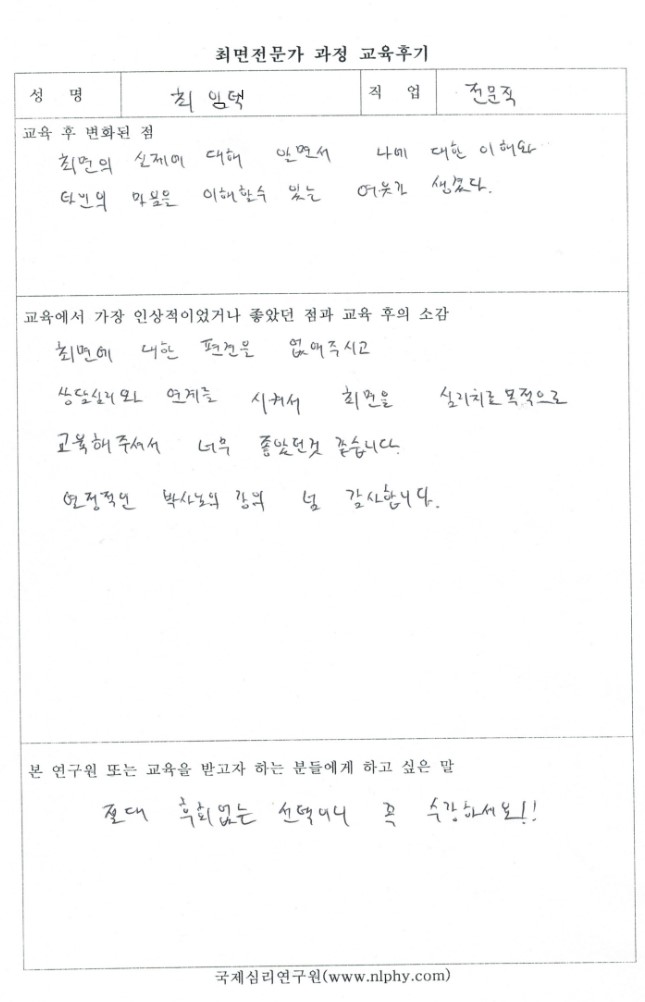 최면전문가 과정 교육후기
성 명 최 임택 직 업 전문직
교육 후 변화된 점
최면의 실제에 대해 알면서 나에 대한 이해와
타인의 마음을 이해할수 있는 여유가 생겼다.
교육에서 가장 인상적이었거나 좋았던 점과 교육 후의 소감
최면에 대한 편견을 없애주시고
상담심리와 연계를 시켜서 최면을 심리치료목적으로
교육해주셔서 너무 좋았던것 같습니다.
열정적인 박사님의 강의 넘 감사합니다.
본 연구원 또는 교육을 받고자 하는 분들에게 하고 싶은 말
절대 후회없는 선택이니 꼭 수강하세요!!
국제심리연구원(www.nlphy.com)